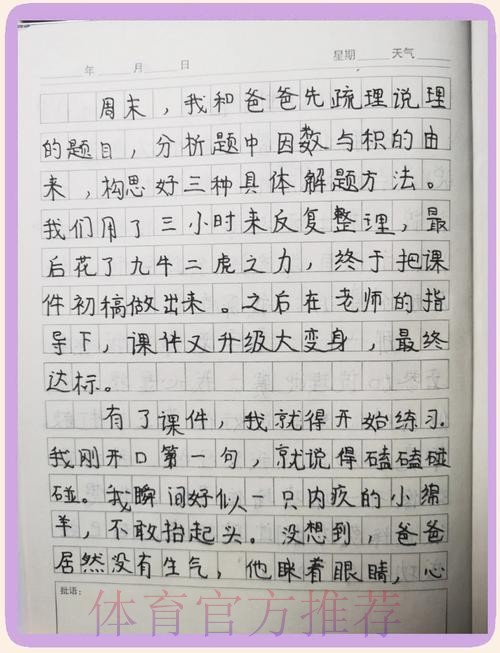 年 月 日 星期 天气
周末，我和爸爸先疏理说理
的题目，分析题中因数与积的由
来，构思好三种具体解题方法。
我们用了三小时来反复整理，最
后花了九牛二虎之力，终于把课
件初稿做出来。之后在老师的指
导下，课件又升级大变身，最终
达标。
有了课件，我就得开始练习.
我刚开口第一句，就说得磕磕碰
碰。我瞬间好似一只内疚的小绵
羊，不敢抬起头。没想到，爸爸
居然没有生气，他眯着眼睛，心
批语：
体育官方推荐